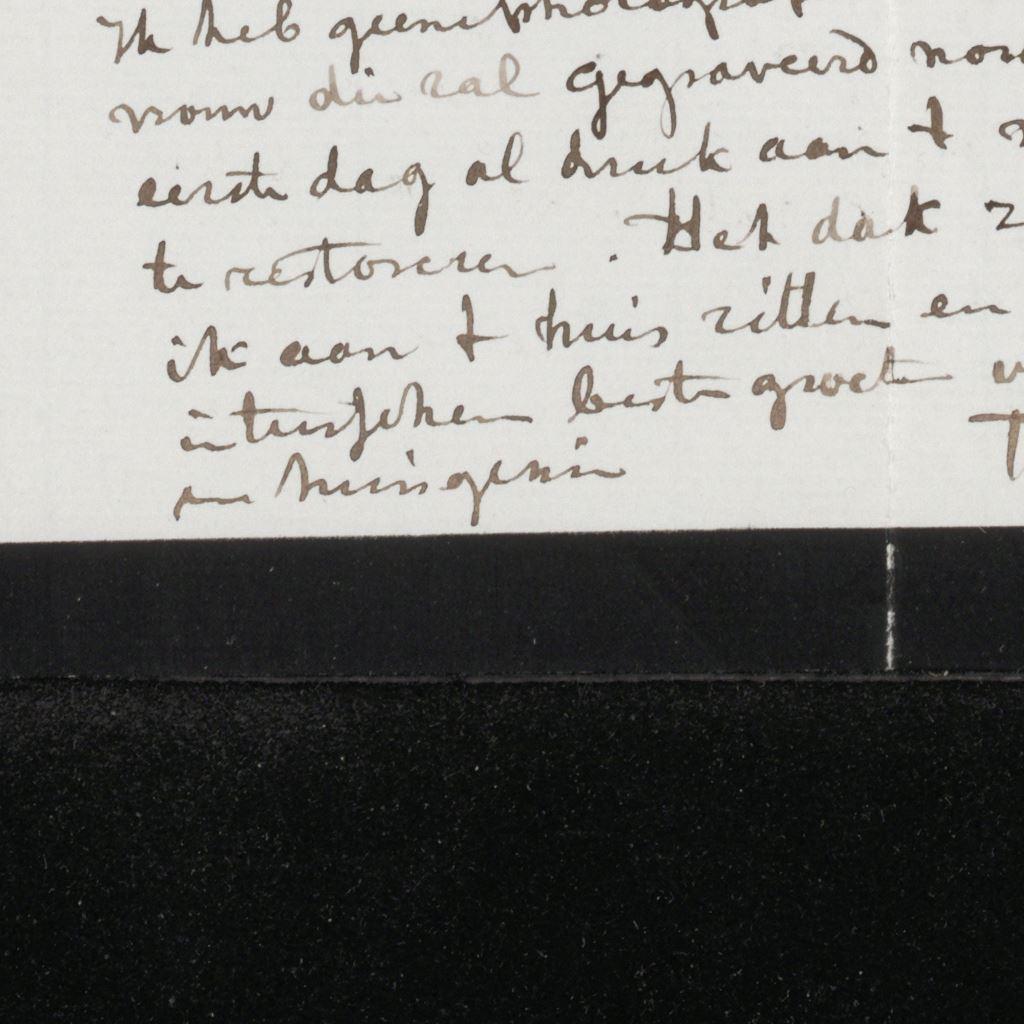 Ik heb geene photograf
vrouw die zal gegraveerd wor
eerste dag al druk aan t
te restoreren. Het dak z
ik aan t huis zitten en
intusschen beste groet v
en huisgezin
T